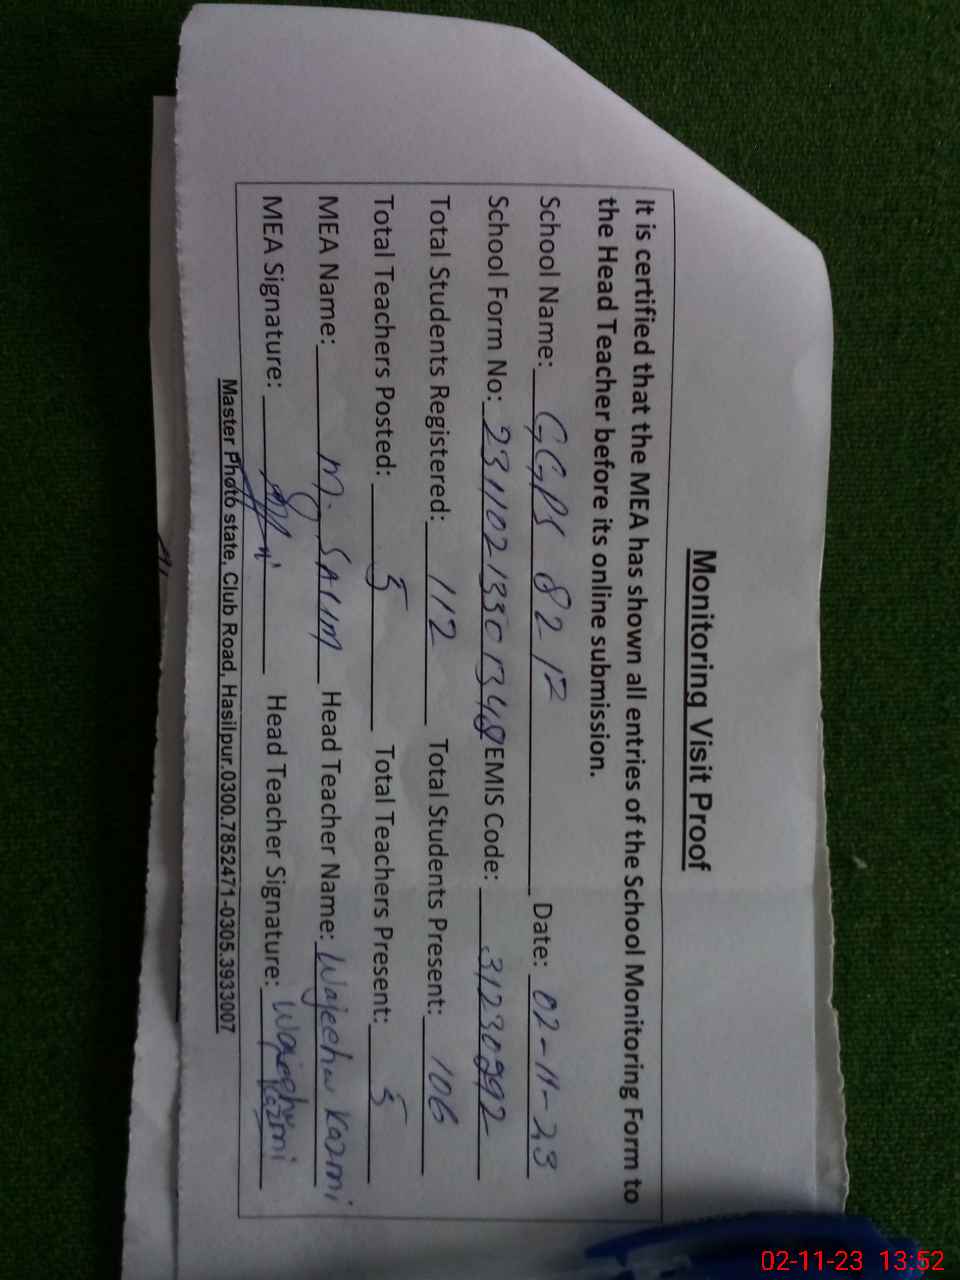 Monitoring Visit Proof
It is certified that the MEA has shown all entries of the School Monitoring Form to
the Head Teacher before its online submission.
School Name: GGPS 82 Date: 02-11-23
School Form No: EMIS Code: 31230992
Total Students Registered: 112 Total Students Present: 106
Total Teachers Posted: 5 Total Teachers Present: 5
MEA Name: M. SALIM Head Teacher Name: Wajeeha Kazmi
MEA Signature: Head Teacher Signature: Wajeeha Kazmi
Master Photo state, Club Road, Hasilpur.0300.7852471-0305.3933007
02-11-23 13:52